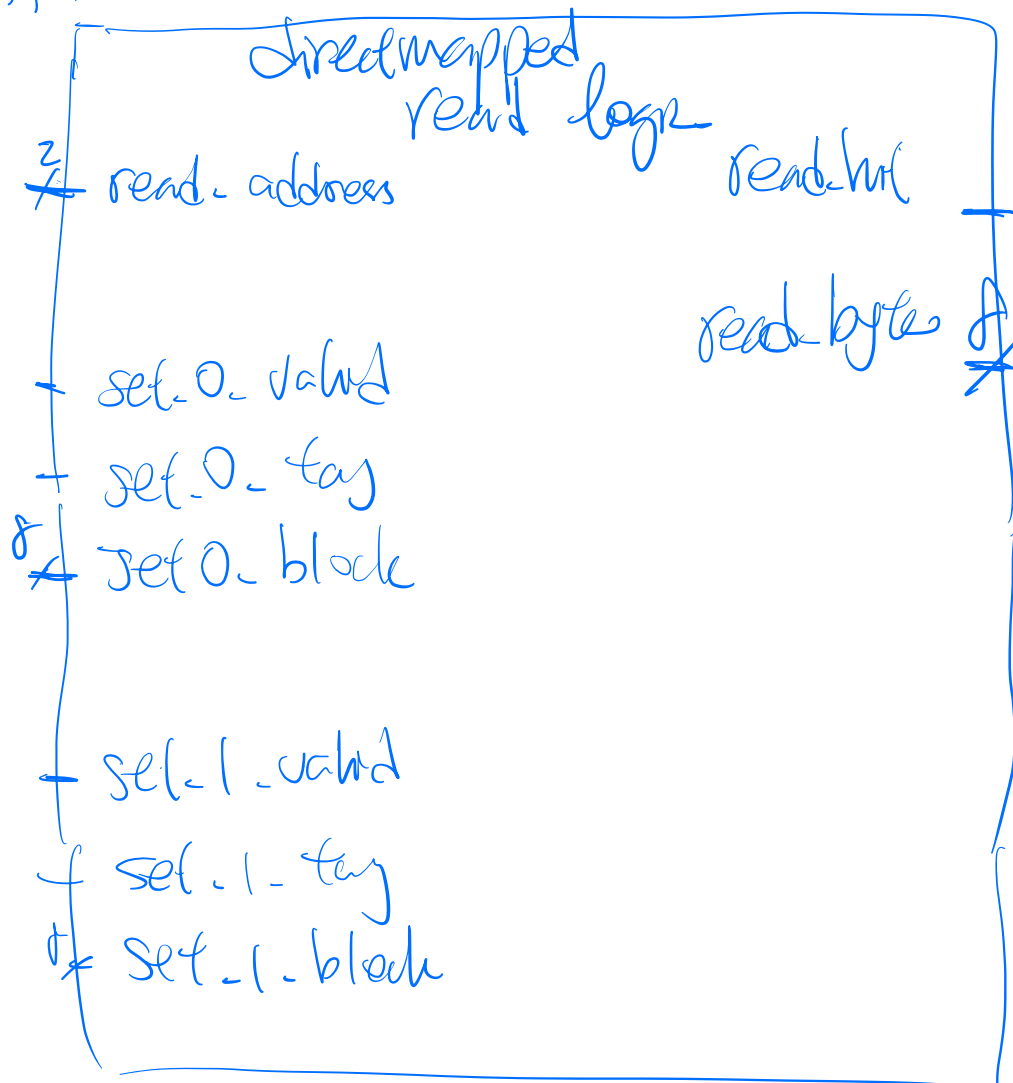 directmapped
read logic
2
read_address
read_hit
read_byte 8
set_0_valid
set_0_tag
8
set0_block
set_1_valid
set_1_tag
8 set_1_block